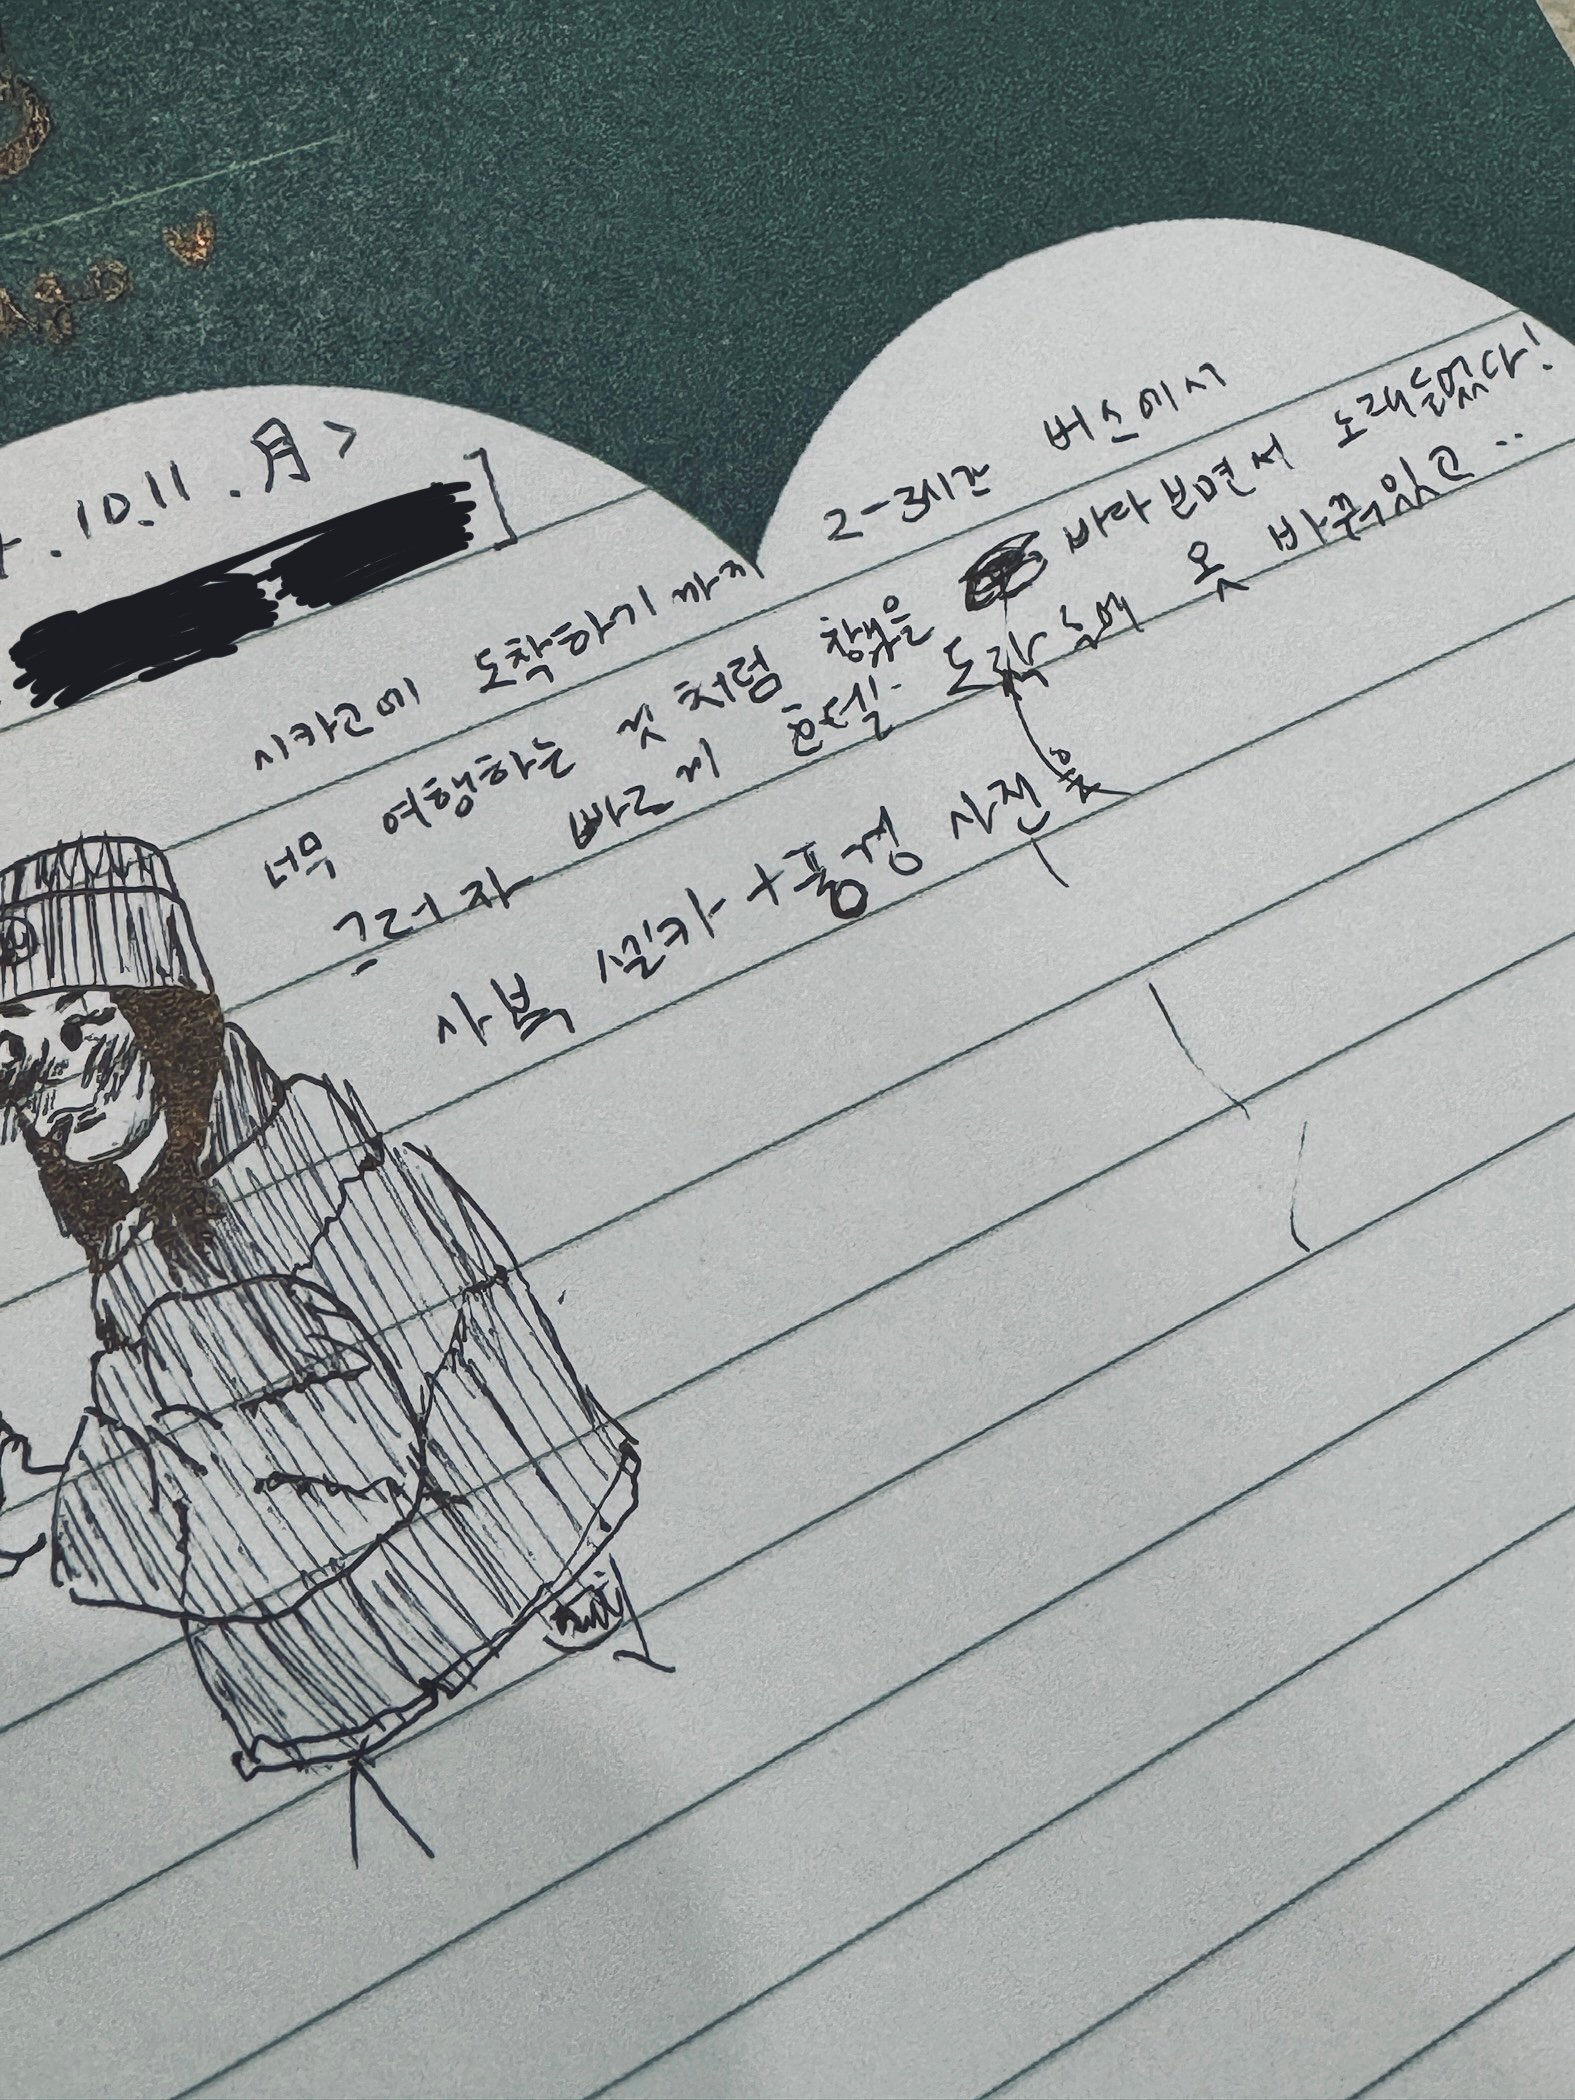 .10.11.月>
]
시카고에 도착하기까지 2-3시간 버스에서
너무 여행하는 것 처럼 창밖을 바라보면서 노래들었다!
그러자 빠르게 호텔 도착 후에 옷 바꿔입고..
사복 셀카+풍경 사진을